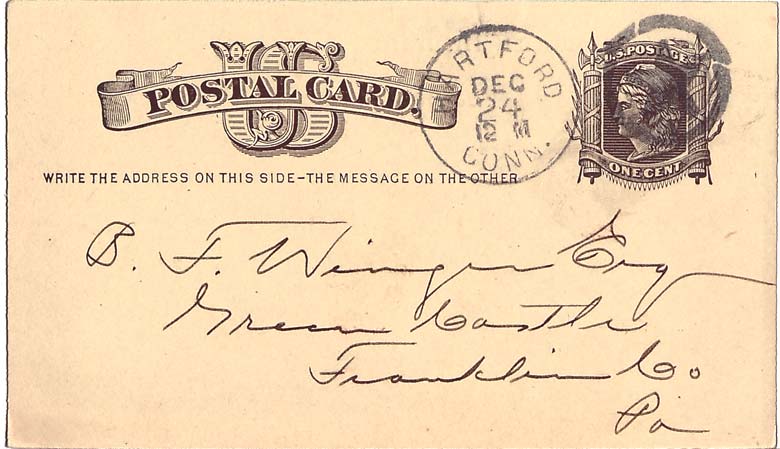 US
POSTAL CARD.
HARTFORD
DEC
24
12 M
CONN.
U.S. POSTAGE
ONE CENT
WRITE THE ADDRESS ON THIS SIDE-THE MESSAGE ON THE OTHER
B. F. Winger Esq
Green Castle
Franklin Co
Pa